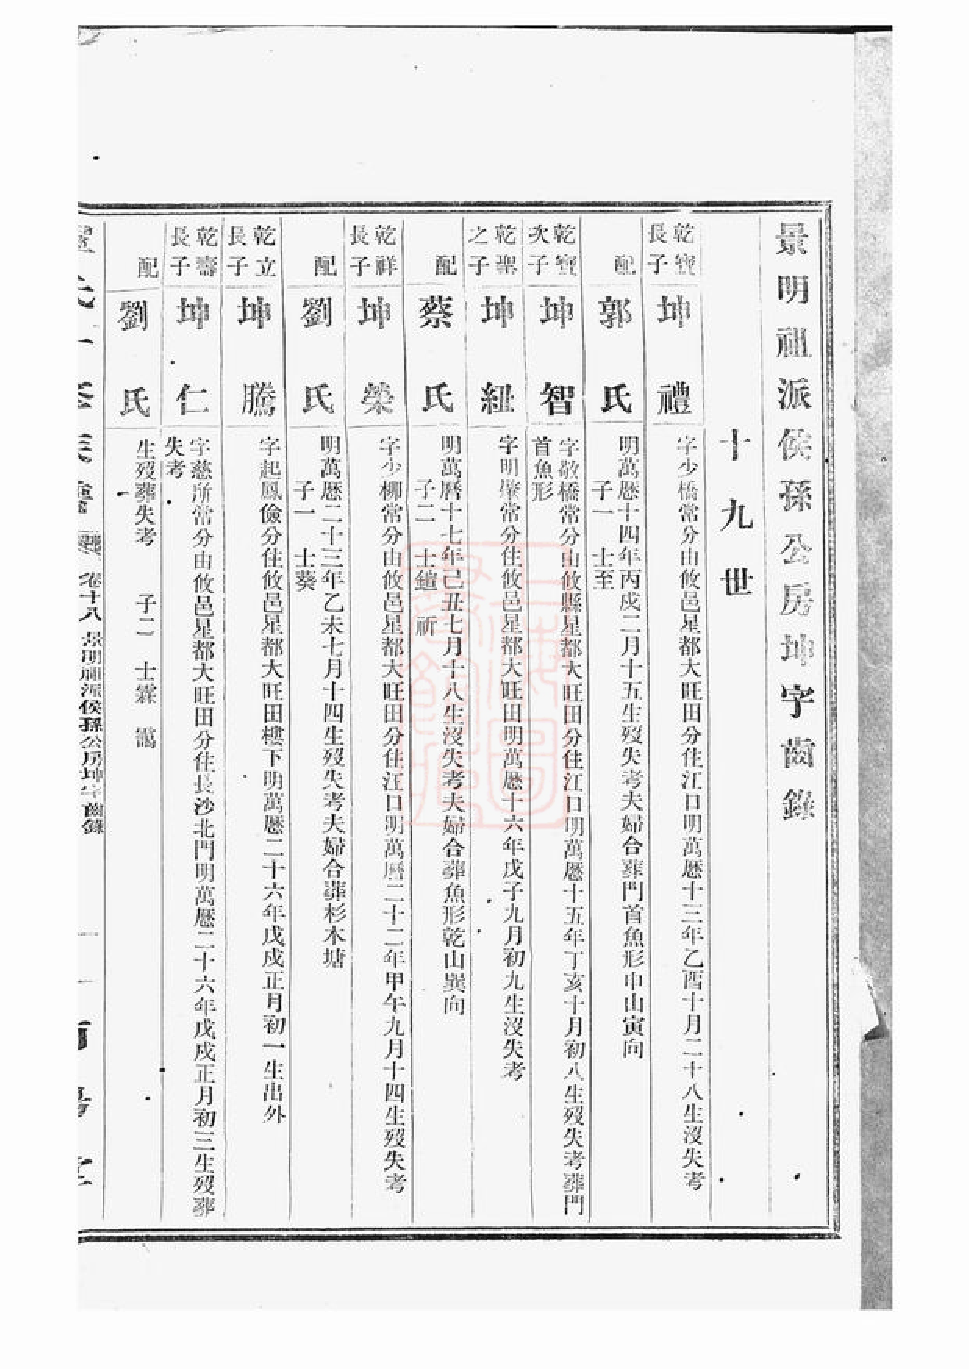 景明祖派侯孫公房坤字齒錄
十九世
乾寶長子 坤禮 字少橋常分由攸邑星都大旺田分住江口明萬歷十三年乙酉十月二十八生沒失考
配 郭氏 明萬歷十四年丙戌二月十五生歿失考夫婦合葬門首魚形申山寅向
子一 士至
乾寶次子 坤智 字敬橋常分由攸縣星都大旺田分住江口明萬歷十五年丁亥十月初八生歿失考葬門
首魚形
乾聖之子 坤紐 字明肇常分住攸邑星都大旺田明萬歷十六年戊子九月初九生沒失考
配 蔡氏 明萬曆十七年己丑七月十八生沒失考夫婦合葬魚形乾山巽向
子二 士鎧 祈
乾祥長子 坤榮 字少柳常分由攸邑星都大旺田分住江口明萬曆二十二年甲午九月十四生歿失考
配 劉氏 明萬歷二十三年乙未七月十四生歿失考夫婦合葬杉木塘
子一 士葵
乾立長子 坤騰 字起鳳儉分住攸邑星都大旺田樓下明萬歷二十六年戊戌正月初一生出外
乾壽長子 坤仁 字慈所常分由攸邑星都大旺田分住長沙北門明萬歷二十六年戊戌正月初三生歿葬
失考
配 劉氏 生歿葬失考 子二 士霖 靄
卷十八 景明祖派侯孫公房坤字齒錄